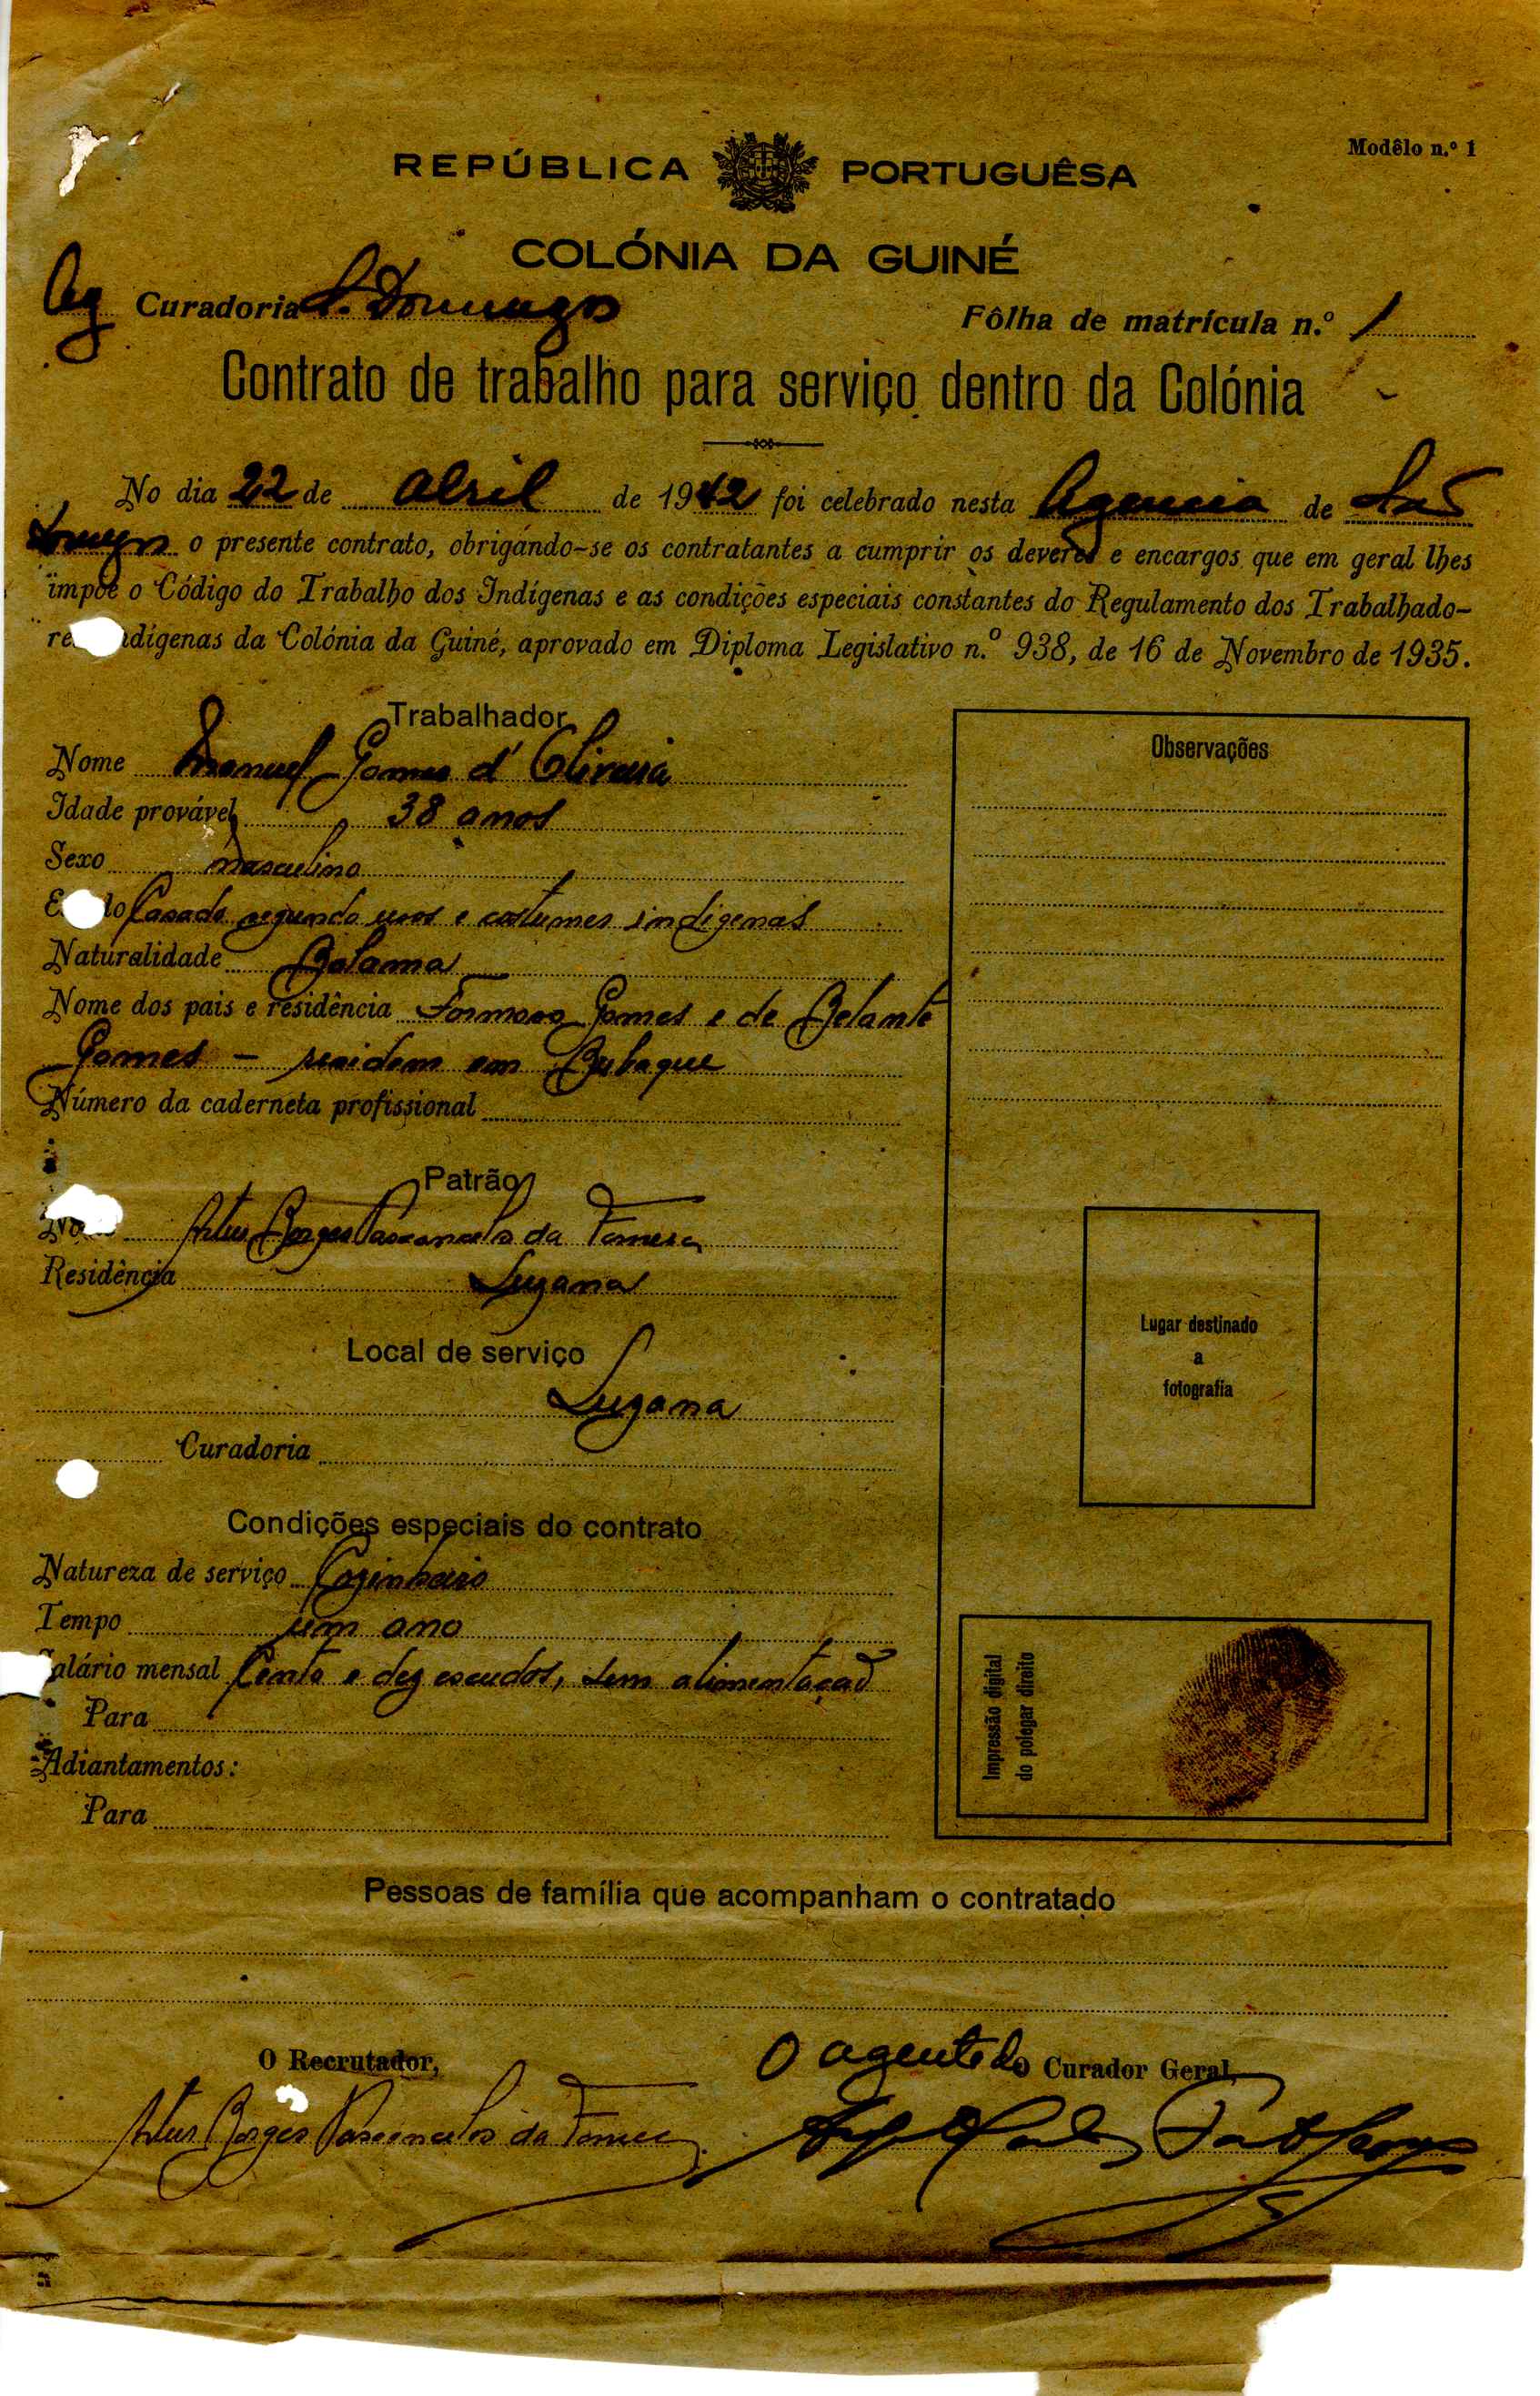 Modêlo n.º 1
REPÚBLICA PORTUGUÊSA
COLÓNIA DA GUINÉ
Ag Curadoria S. Domingos
Fôlha de matrícula n.º 1
Contrato de trabalho para serviço dentro da Colónia
No dia 22 de Abril de 1942 foi celebrado nesta Agencia de São
Domingos o presente contrato, obrigándo-se os contratantes a cumprir os deveres e encargos que em geral lhes
impõe o Código do Trabalho dos Indígenas e as condições especiais constantes do Regulamento dos Trabalhado-
re dígenas da Colónia da Guiné, aprovado em Diploma Legislativo n.º 938, de 16 de Novembro de 1935.
Trabalhador
Nome Manuel Gomes d'Oliveira
Idade provável 38 anos
Sexo masculino
E do Casado segundo usos e costumes indigenas
Naturalidade Bolama
Nome dos pais e residência Formoso Gomes e de Belante
Gomes – residem em Bubaque
Número da caderneta profissional
Patrão
No Artur Borges Vasconcelos da Fonseca
Residência Suzana
Local de serviço
Suzana
Curadoria
Condições especiais do contrato
Natureza de serviço Cozinheiro
Tempo um ano
alário mensal Cento e dez escudos, sem alimentação
Para
Adiantamentos:
Para
Observações
Lugar destinado
a
fotografia
Impressão digital
do polegar direito
Pessoas de família que acompanham o contratado
O Recrutador,
O agente do O Curador Geral,
Artur Borges Vasconcelos da Fonseca